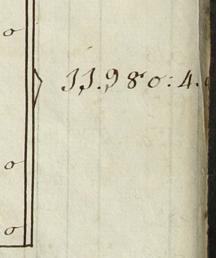 o
11.980:4.
o
o